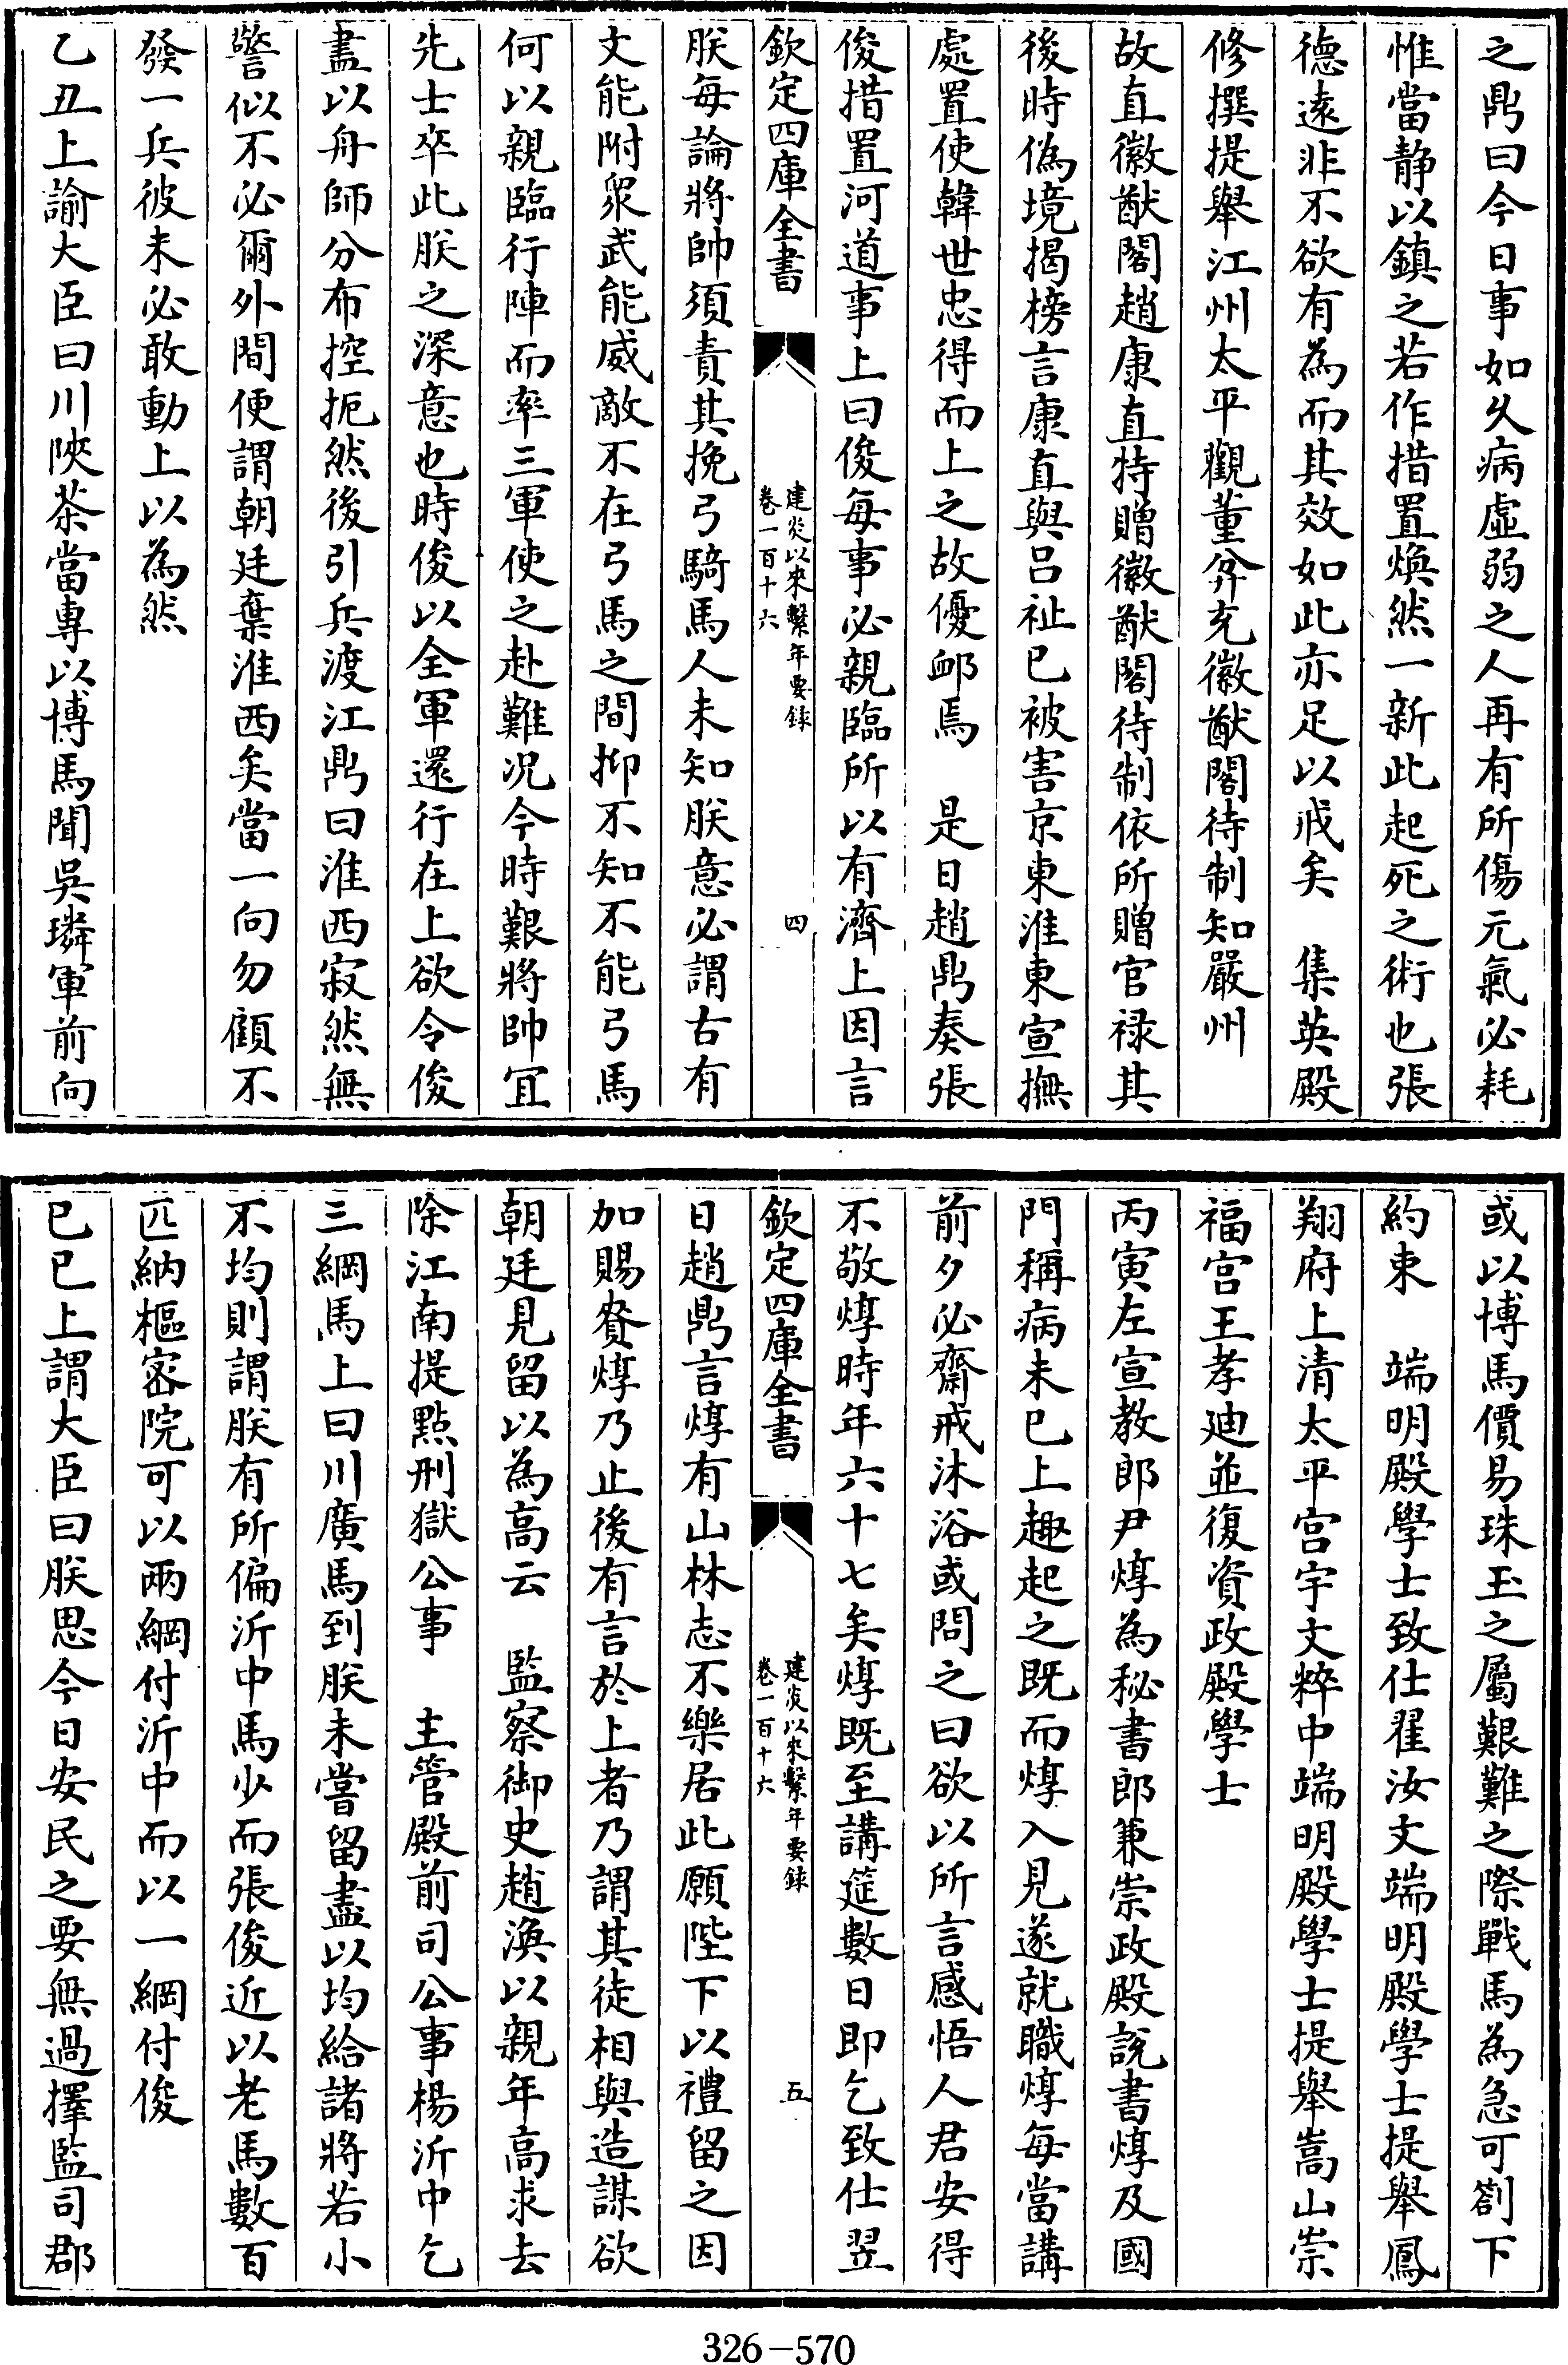 之鼎曰今日事如久病虛弱之人再有所傷元氣必耗
惟當静以鎮之若作措置煥然一新此起死之術也張
德遠非不欲有為而其效如此亦足以戒矣　集英殿
修撰提舉江州太平觀董弅充徽猷閣待制知嚴州
故直徽猷閣趙康直特贈徽猷閣待制依所贈官禄其
後時偽境揭榜言康直與吕祉已被害京東淮東宣撫
處置使韓世忠得而上之故優卹焉　是日趙鼎奏張
俊措置河道事上曰俊每事必親臨所以有濟上因言
欽定四庫全書
建炎以來繫年要録
卷一百十六
四
朕每論將帥須責其挽弓騎馬人未知朕意必謂古有
文能附衆武能威敵不在弓馬之間抑不知不能弓馬
何以親臨行陣而率三軍使之赴難况今時艱將帥宜
先士卒此朕之深意也時俊以全軍還行在上欲令俊
盡以舟師分布控扼然後引兵渡江鼎曰淮西寂然無
警似不必爾外間便謂朝廷棄淮西矣當一向勿顧不
發一兵彼未必敢動上以為然
乙丑上諭大臣曰川陜茶當專以博馬聞吳璘軍前向
或以博馬價易珠玉之屬艱難之際戰馬為急可劄下
約束　端明殿學士致仕翟汝文端明殿學士提舉鳳
翔府上清太平宫宇文粹中端明殿學士提舉嵩山崇
福宫王孝廸並復資政殿學士
丙寅左宣教郎尹焞為秘書郎兼崇政殿說書焞及國
門稱病未已上趣起之既而焞入見遂就職焞每當講
前夕必齋戒沐浴或問之曰欲以所言感悟人君安得
不敬焞時年六十七矣焞既至講筵數日即乞致仕翌
欽定四庫全書
建炎以來繫年要録
卷一百十六
五
日趙鼎言焞有山林志不樂居此願陛下以禮留之因
加賜賚焞乃止後有言於上者乃謂其徒相與造謀欲
朝廷見留以為高云　監察御史趙渙以親年高求去
除江南提點刑獄公事　主管殿前司公事楊沂中乞
三綱馬上曰川廣馬到朕未嘗留盡以均給諸將若小
不均則謂朕有所偏沂中馬少而張俊近以老馬數百
匹納樞密院可以兩綱付沂中而以一綱付俊
已已上謂大臣曰朕思今日安民之要無過擇監司郡
326-570